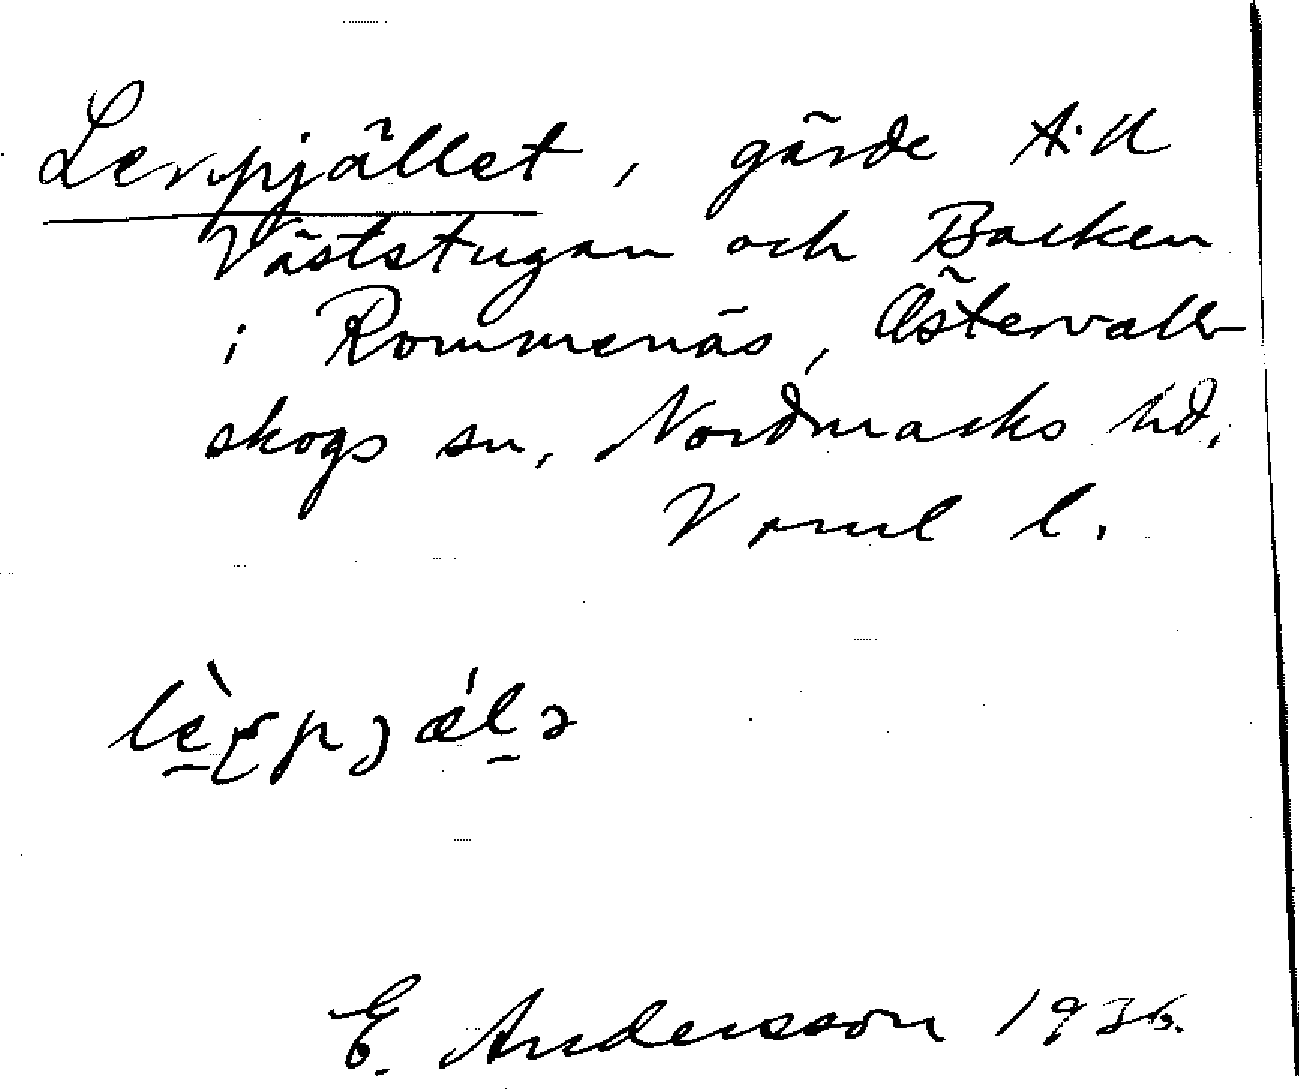 Lerpjället, gärde till
Väststugan och Backen
i Rommenäs, Östervall-
skogs sn, Nordmarks hd,
Vrml l.
lèrpjǽlə
E. Andersson 1936.